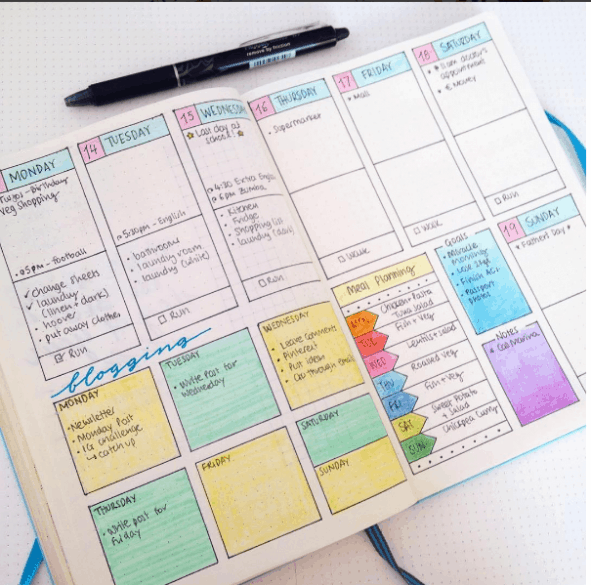 remove by friction
MONDAY
Veg shopping
5pm - Football
change sheets
laundry
(linen + dark)
hoover
put away clothes
Run
14 TUESDAY
5:30pm - English
bathrooms
laundry room
laundry (white)
Run
15 WEDNESDAY
Last day at
school!
4:30 Extra
6pm Zumba
Kitchen
Fridge
Shopping list
laundry
Run
16 THURSDAY
Supermarket
17 FRIDAY
18 SATURDAY
doctors
appointment
Run
19 SUNDAY
Father's Day
blogging
MONDAY
Newsletter
Monday Post
challenge
catch up
TUESDAY
Write post for
Wednesday
WEDNESDAY
Leave comments
Pinterest
Go through email
THURSDAY
Write post for
Friday
FRIDAY
SATURDAY
SUNDAY
Meal Planning
MON Chicken + Pasta
Tuna Salad
TUE Fish + Veg
WED Lentils + Salad
THU Roasted Veg
FRI Fish + Veg
SAT Sweet Potato
+ Salad
SUN Chickpea Curry
Goals
Miracle
Mornings
Finish
Passport
Photos
Notes
Call